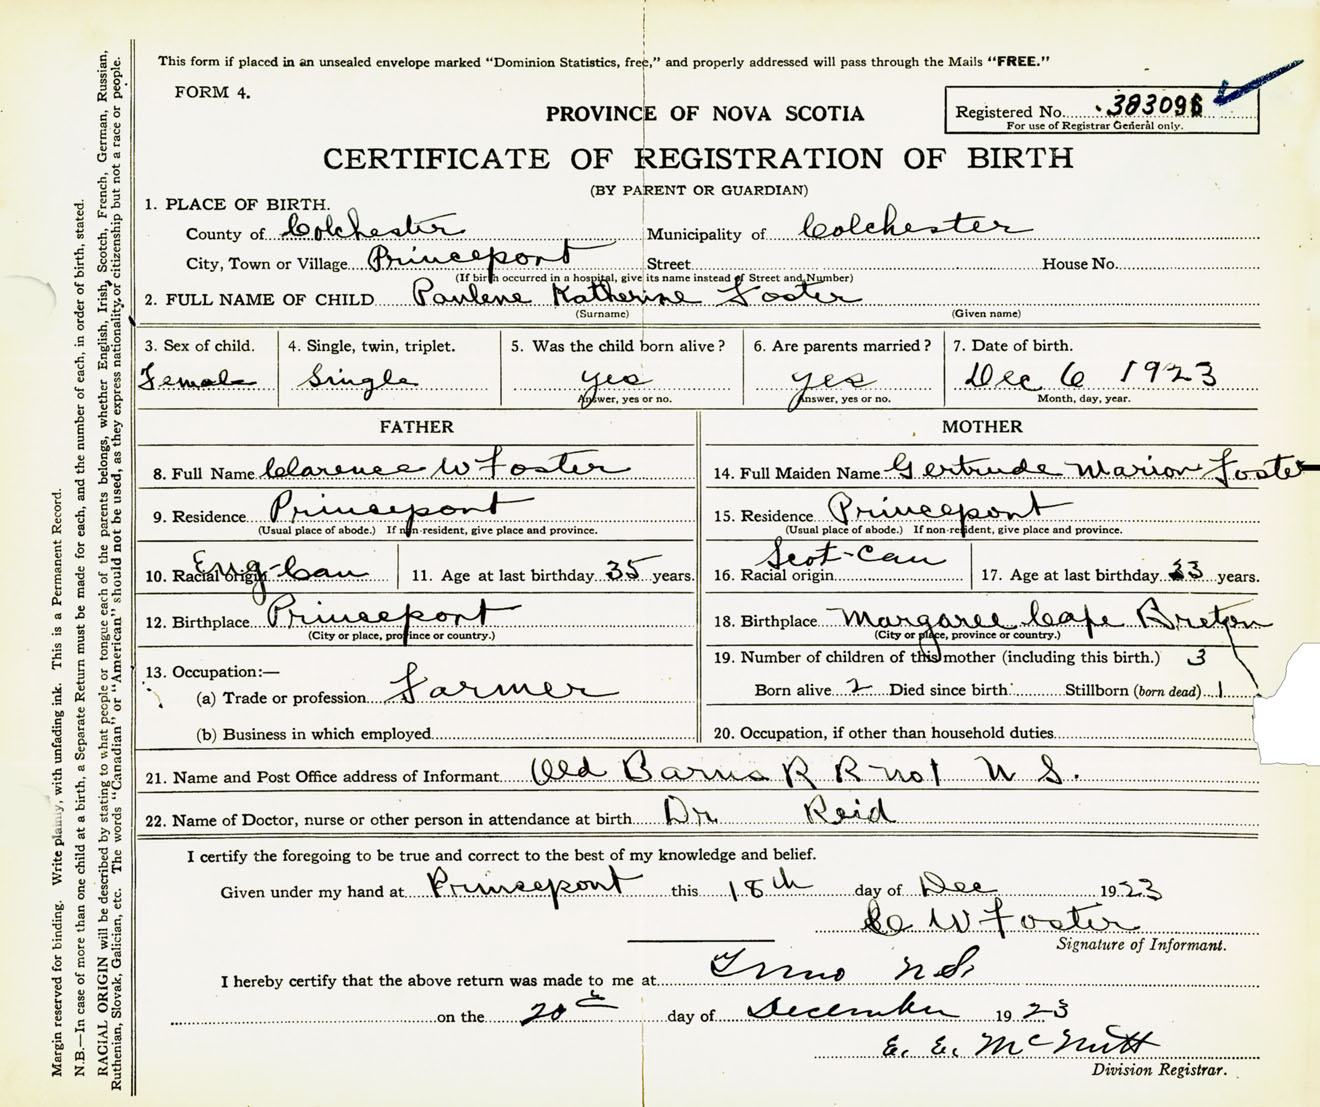 This form if placed in an unsealed envelope marked "Dominion Statistics, free," and properly addressed will pass through the Mails "FREE."
FORM 4.
Registered No. 383096
For use of Registrar General only.
PROVINCE OF NOVA SCOTIA
CERTIFICATE OF REGISTRATION OF BIRTH
(BY PARENT OR GUARDIAN)
1. PLACE OF BIRTH.
County of Colchester Municipality of Colchester
City, Town or Village Princeport Street House No.
(If birth occurred in a hospital, give its name instead of Street and Number)
2. FULL NAME OF CHILD Paulene Katherine Foster
(Surname) (Given name)
3. Sex of child. 4. Single, twin, triplet. 5. Was the child born alive? 6. Are parents married? 7. Date of birth.
Female Single yes yes Dec 6 1923
Answer, yes or no. Answer, yes or no. Month, day, year.
FATHER MOTHER
8. Full Name Clarence W Foster 14. Full Maiden Name Gertrude Marion Foster
9. Residence Princeport 15. Residence Princeport
(Usual place of abode.) If non-resident, give place and province. (Usual place of abode.) If non-resident, give place and province.
10. Racial origin Eng-Can 11. Age at last birthday 35 years. 16. Racial origin Scot-Can 17. Age at last birthday 33 years.
12. Birthplace Princeport 18. Birthplace Margaree Cape Breton
(City or place, province or country.) (City or place, province or country.)
13. Occupation:— 19. Number of children of this mother (including this birth.) 3
(a) Trade or profession Farmer Born alive 2 Died since birth Stillborn (born dead) 1
(b) Business in which employed 20. Occupation, if other than household duties
21. Name and Post Office address of Informant Old Barns R R no 1 N S.
22. Name of Doctor, nurse or other person in attendance at birth Dr. Reid
I certify the foregoing to be true and correct to the best of my knowledge and belief.
Given under my hand at Princeport this 18th day of Dec 1923
C W Foster
Signature of Informant.
I hereby certify that the above return was made to me at Truro N.S.
on the 20th day of December 1923
E. E. McNutt
Division Registrar.
Margin reserved for binding. Write plainly, with unfading ink. This is a Permanent Record.
N.B.—In case of more than one child at a birth, a Separate Return must be made for each, and the number of each, in order of birth, stated.
RACIAL ORIGIN will be described by stating to what people or tongue each of the parents belongs, whether English, Irish, Scotch, French, German, Russian,
Ruthenian, Slovak, Galician, etc. The words "Canadian" or "American" should not be used, as they express nationality or citizenship but not a race or people.